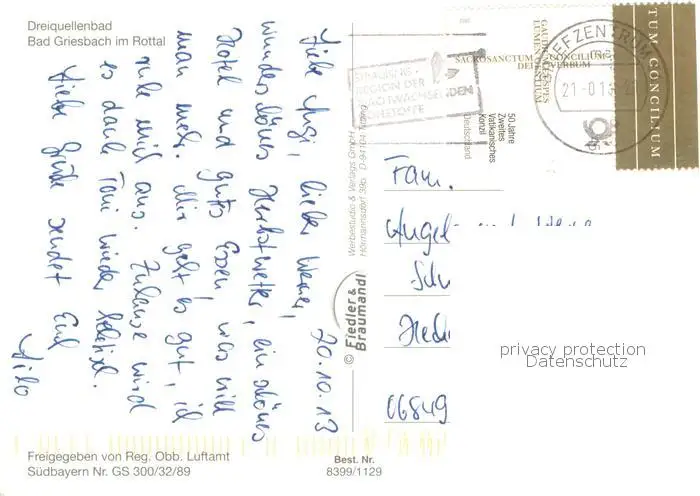 Dreiquellenbad
Bad Griesbach im Rottal
20.10.13
Liebe Angi, lieber Werner,
wunderschönes Herbstwetter, ein schönes
Hotel und gutes Essen, was will
man mehr. Mir geht es gut, ich
ruhe mich aus. Zuhause wird
es dank Toni wieder hektisch.
Liebe Grüße sendet Euch
Freigegeben von Reg. Obb. Luftamt
Südbayern Nr. GS 300/32/89
Best. Nr.
8399/1129
© Fiedler &
Braumandl
Werbestudio & Verlags GmbH
Hörmannsdorf 39b D-94104 Tittling
STRAUBING -
REGION DER
NACHWACHSENDEN
ROHSTOFFE
SACROSANCTUM CONCILIUM
DEI VERBUM
GAUDIUM ET SPES
LUMEN GENTIUM
50 Jahre
Zweites
Vatikanisches
Konzil
Deutschland
BRIEFZENTRUM
TUM CONCILIUM
Fam.
Angel
Schu
06849
privacy protection
Datenschutz